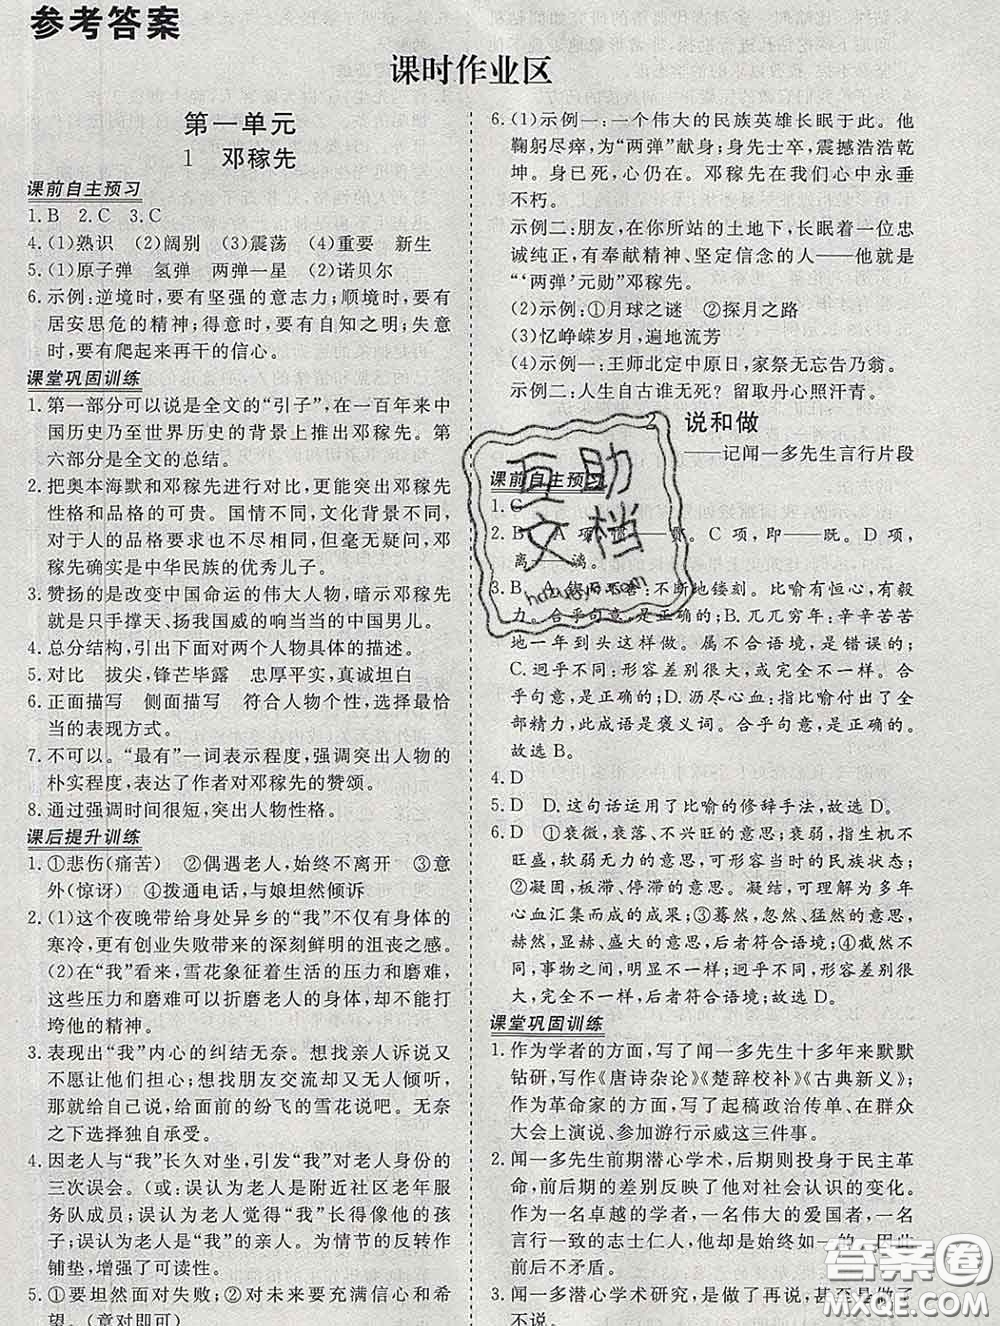 参考答案
课时作业区
第一单元
1 邓稼先
课前自主预习
1.B 2.C 3.C
4.(1)熟识 (2)阔别 (3)震荡 (4)重要 新生
5.(1)原子弹 氢弹 两弹一星 (2)诺贝尔
6.示例:逆境时,要有坚强的意志力;顺境时,要有
居安思危的精神;得意时,要有自知之明;失意
时,要有爬起来再干的信心。
课堂巩固训练
1.第一部分可以说是全文的“引子”,在一百年来中
国历史乃至世界历史的背景上推出邓稼先。第
六部分是全文的总结。
2.把奥本海默和邓稼先进行对比,更能突出邓稼先
性格和品格的可贵。国情不同,文化背景不同,
对于人的品格要求也不尽相同,但毫无疑问,邓
稼先确实是中华民族的优秀儿子。
3.赞扬的是改变中国命运的伟大人物,暗示邓稼先
就是只手撑天、扬我国威的响当当的中国男儿。
4.总分结构,引出下面对两个人物具体的描述。
5.对比 拔尖,锋芒毕露 忠厚平实,真诚坦白
6.正面描写 侧面描写 符合人物个性,选择最恰
当的表现方式。
7.不可以。“最有”一词表示程度,强调突出人物的
朴实程度,表达了作者对邓稼先的赞颂。
8.通过强调时间很短,突出人物性格。
课后提升训练
1.①悲伤(痛苦) ②偶遇老人,始终不离开 ③意
外(惊讶) ④拨通电话,与娘坦然倾诉
2.(1)这个夜晚带给身处异乡的“我”不仅有身体的
寒冷,更有创业失败带来的深刻鲜明的沮丧之感。
(2)在“我”看来,雪花象征着生活的压力和磨难,
这些压力和磨难可以折磨老人的身体,却不能打
垮他的精神。
3.表现出“我”内心的纠结无奈。想找亲人诉说又
怕亲人担忧,想找朋友交流却又无人倾听,
那就给自己说,给面前的纷飞的雪花说吧。无奈
之下选择独自承受。
4.因老人与“我”长久对坐,引发“我”对老人身份的
三次误会。(或:误认为老人是附近社区老年服
务队成员;误认为老人觉得“我”长得像他的孩
子;误认为老人是“我”的亲人。为情节的反转作
铺垫,增强了可读性。
5.①要坦然面对失败;②对未来要充满信心和希
望。(意对即可)
6.(1)示例一:一个伟大的民族英雄长眠于此。他
鞠躬尽瘁,为“两弹”献身;身先士卒,震撼浩浩乾
坤。身已死,心仍在。邓稼先在我们心中永垂
不朽。
示例二:朋友,在你所站的土地下,长眠着一位忠
诚纯正,有奉献精神、坚定信念的人——他就是
“‘两弹’元勋”邓稼先。
(2)示例:①月球之谜 ②探月之路
(3)忆峥嵘岁月,遍地流芳
(4)示例一:王师北定中原日,家祭无忘告乃翁。
示例二:人生自古谁无死? 留取丹心照汗青。
2 说和做
——记闻一多先生言行片段
课前自主预习
1.C
2.B A项,惯——贯。C项,即——既。D项,
离——漓。
3.B A.锲而不舍:不断地镂刻。比喻有恒心,有毅
力。合乎句意,是正确的;B.兀兀穷年:辛辛苦苦
地一年到头这样做。属不合语境,是错误的;
C.迥乎不同:形容差别很大,或完全不一样。合
乎句意,是正确的;D.沥尽心血:指比喻付出了全
部精力,此成语是褒义词。合乎句意,是正确的。
故选B。
4.D
5.D D.这句话运用了比喻的修辞手法,故选D。
6.D ①衰微,衰落、不兴旺的意思;衰弱,指生机不
旺盛,软弱无力的意思,可形容当时的民族状态;
②凝固,板滞、停滞的意思。凝结,可理解为多年
心血汇集而成的成果;③蓦然,忽然、猛然的意思,
赫然,显赫、盛大的意思,后者符合语境;④截然
不同,事物之间,明显不一样;迥乎不同,差别很大,
完全不一样,后者符合语境;故选D。
课堂巩固训练
1.作为学者的方面,写了闻一多先生十多年来默默
钻研,写作《唐诗杂论》《楚辞校补》《古典新义》;
作为革命家的方面,写了起稿政治传单、在群众
大会上演说、参加游行示威这三件事。
2.闻一多先生前期潜心学术,后期则投身于民主革
命,前后期的差别反映了他对社会认识的变化。
作为一名卓越的学者,一名伟大的爱国者,一名
言行一致的志士仁人,他却是始终如一的,因此前
后并不矛盾。
3.闻一多先生潜心学术研究,是做了再说,甚至是做了
不说。
互助
文档
hazuoye.com
答案圈
MXQE.COM